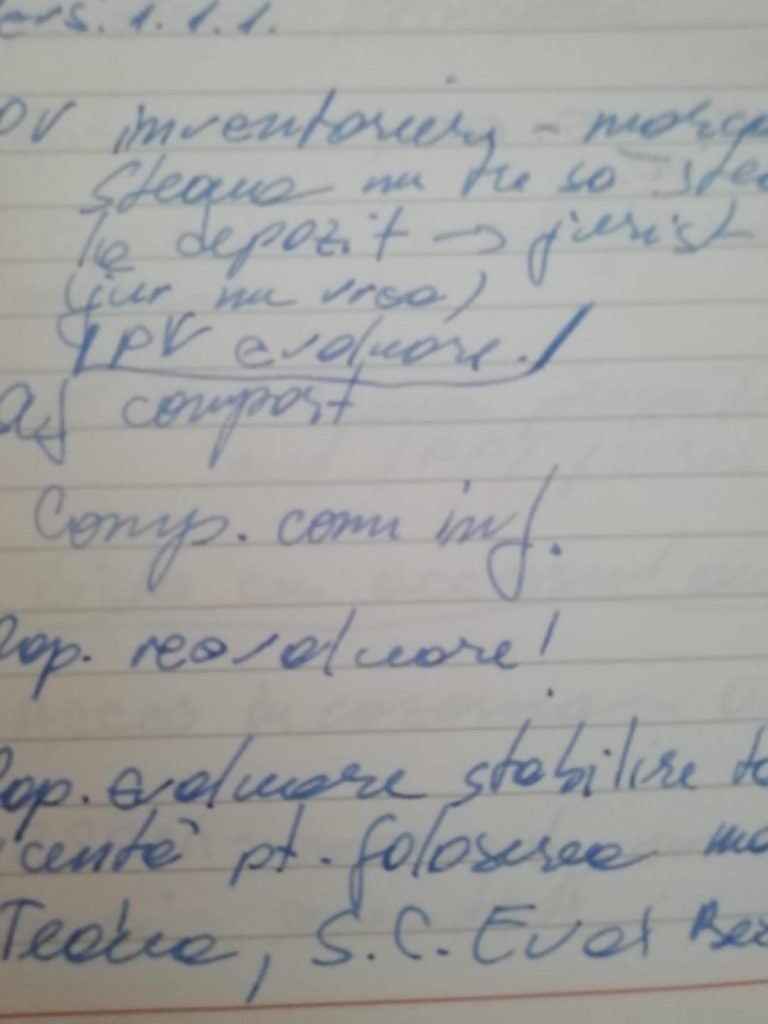 ers. 1.1.1.
PV inventariere - marca
Steaua nu tre să stea
la depozit → jurist
(jur nu vrea)
PV evaluare.
compost
Comp. com inf.
Rap. reevaluare!
Rap. evaluare stabilire
cență pt. folosirea
Steaua, S.C. Eval